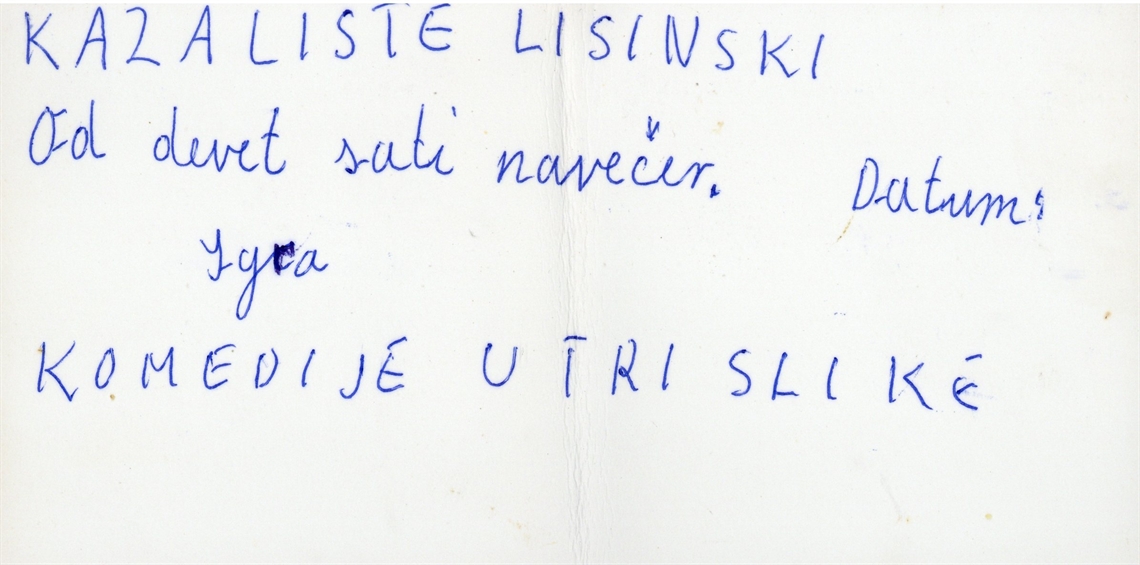 KAZALISTE LISINSKI
Od devet sati navečer. Datum:
Igra
KOMEDIJE U TRI SLIKE